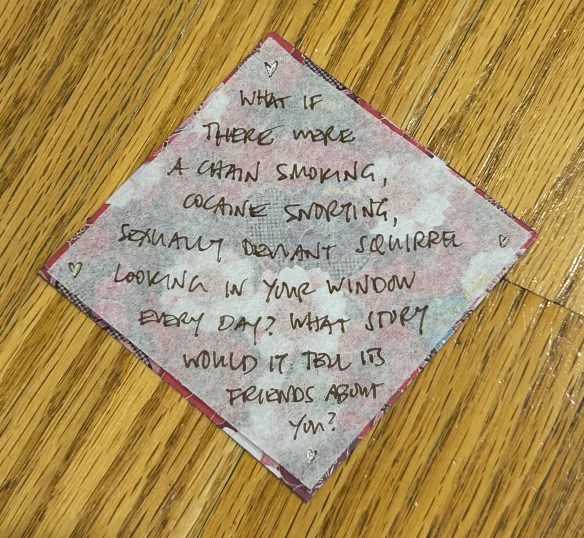 WHAT IF
THERE WERE
A CHAIN SMOKING,
COCAINE SNORTING,
SEXUALLY DEVIANT SQUIRREL
LOOKING IN YOUR WINDOW
EVERY DAY? WHAT STORY
WOULD IT TELL ITS
FRIENDS ABOUT
YOU?